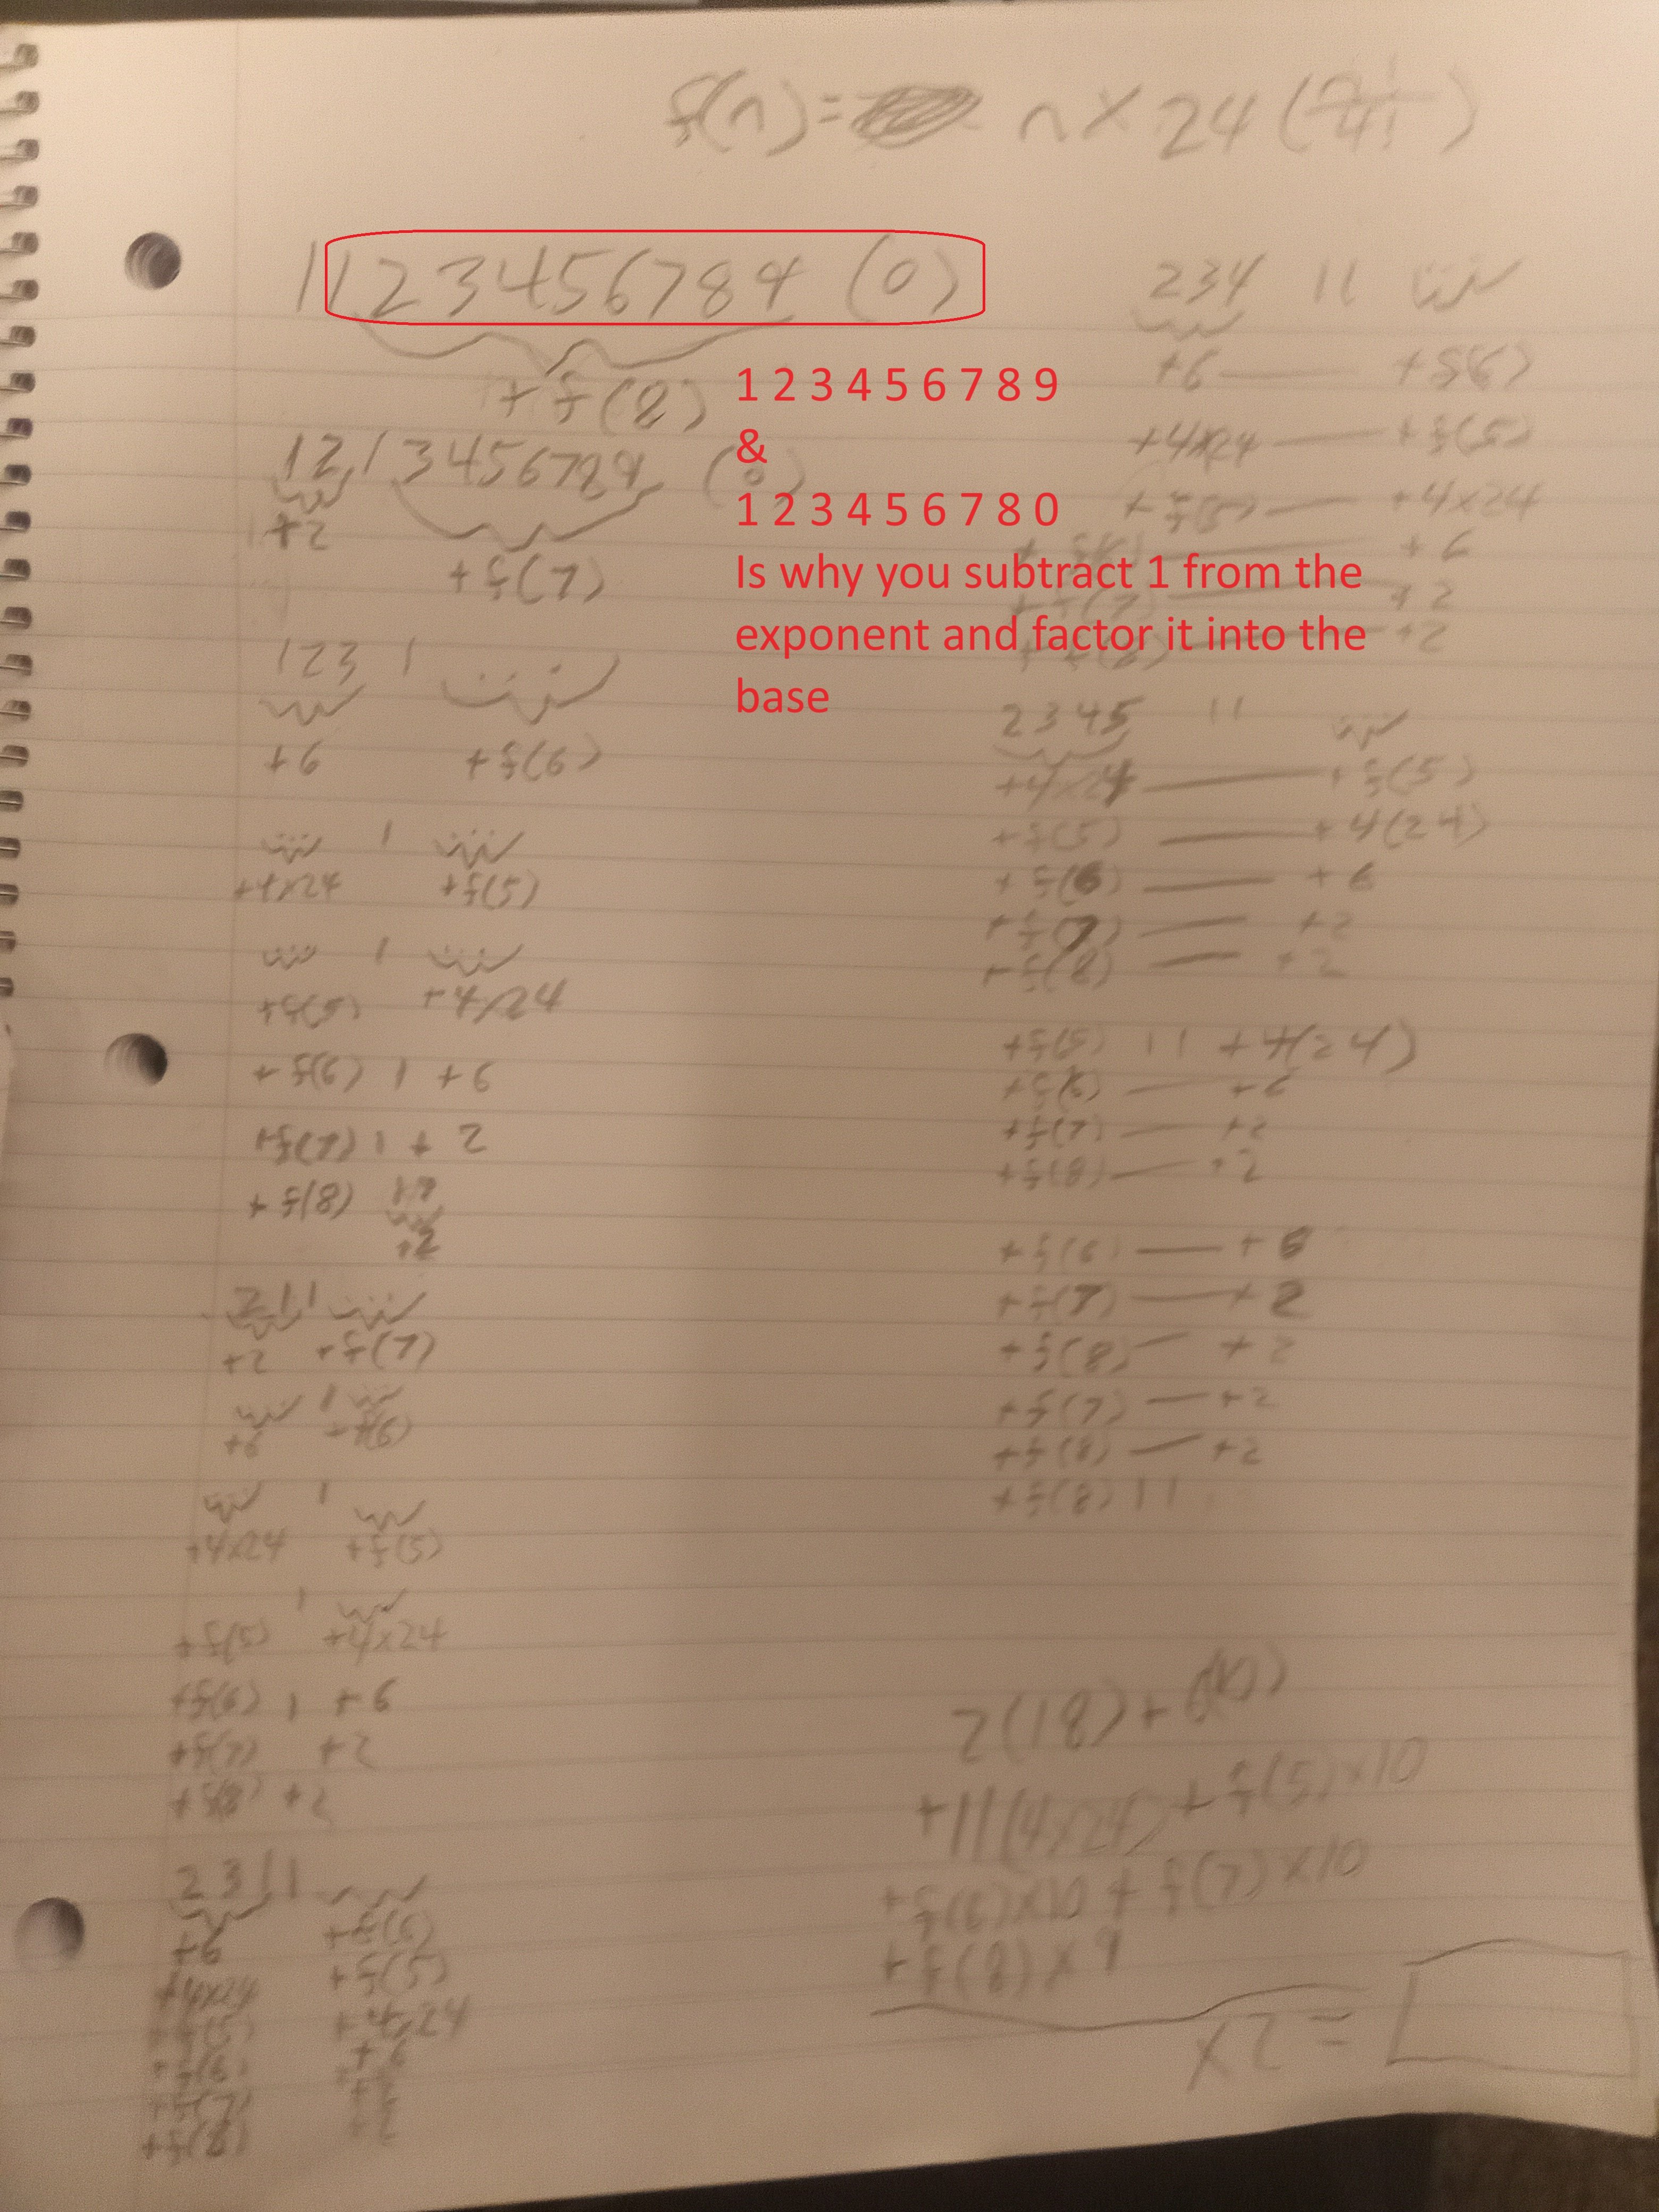 f(n)= n × 24 (n!/4!)
11 2 3 4 5 6 7 8 9 (0)
+ f(8)
12 1 3 4 5 6 7 8 9 (0)
+2
+ f(7)
123 1
+6 + f(6)
1
+4×24 + f(5)
1
+f(5) +4×24
+ f(6) 1 + 6
+f(7) 1 + 2
+ f(8)
+2
2 1 1
+2 + f(7)
1
+6 + f(6)
1
+4×24 + f(5)
1
+f(5) +4×24
+f(6) 1 + 6
+f(7) + 2
+f(8) + 2
2 3 1 1
+6 + f(6)
+4×24 + f(5)
+f(5) + 4×24
+f(6) + 6
+f(7) + 2
+f(8) + 2
1 2 3 4 5 6 7 8 9
&
1 2 3 4 5 6 7 8 0
Is why you subtract 1 from the
exponent and factor it into the
base
234 11
+6 + f(6)
+4×24 + f(5)
+ f(5) + 4×24
+ f(6) + 6
+ f(7) + 2
+ f(8) + 2
2 3 4 5 11
+4×24 + f(5)
+ f(5) + 4(24)
+ f(6) + 6
+ f(7) + 2
+ f(8) + 2
+f(5) 11 + 4(24)
+f(6) + 6
+f(7) + 2
+f(8) + 2
+ f(6) + 6
+ f(7) + 2
+ f(8) + 2
+ f(7) + 2
+ f(8) + 2
+ f(8) 11
2(18) + 6(10)
+11(4×24) + f(5)×10
+f(6)×10 + f(7)×10
+f(8)×9
×2 =